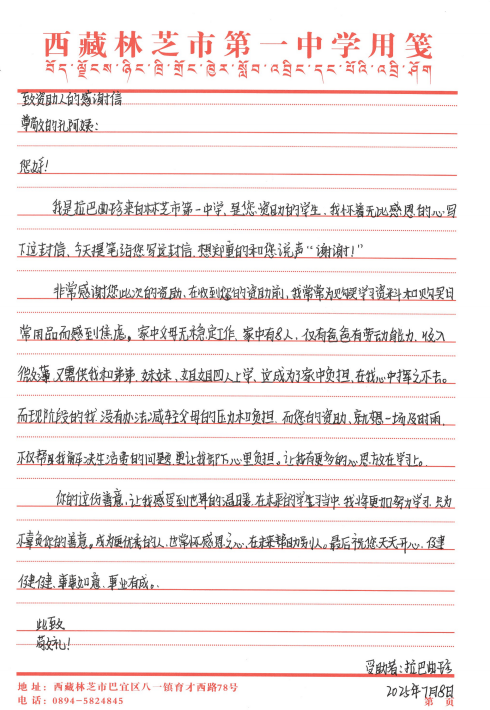 西藏林芝市第一中学用笺
བོད་ལྗོངས་ཉིང་ཁྲི་གྲོང་ཁྱེར་སློབ་འབྲིང་དང་པོའི་འབྲི་ཤོག
致资助人的感谢信
尊敬的孔阿姨:
您好!
我是拉巴曲珍来自林芝市第一中学,是您资助的学生,我怀着无比感恩的心写
下这封信,今天提笔给您写这封信,想郑重的和您说声“谢谢!”
非常感谢您此次的资助、在收到您的资助前,我常常为购买学习资料和购买日
常用品而感到焦虑。家中父母无稳定工作,家中有8人,仅有爸爸有劳动能力、收入
很微薄,又需供我和弟弟、妹妹、姐姐四人上学、这成为了家中负担,在我心中挥之不去。
而现阶段的我,没有办法减轻父母的压力和负担,而您的资助、就想一场及时雨,
不仅帮助我解决生活费的问题,更让我卸下心里负担。让我有更多的心思放在学习上。
你的这份善意,让我感受到世界的温暖,在未来的学生习当中,我将更加努力学习,只为
不辜负你的善意。成为更优秀的人,也常怀感恩之心,在未来帮助别人。最后祝您天天开心,健
健健、事事如意、事业有成。
此致
敬礼!
受助者:拉巴曲珍
2025年7月8日
地址:西藏林芝市巴宜区八一镇育才西路78号
电话:0894-5824845
第 页